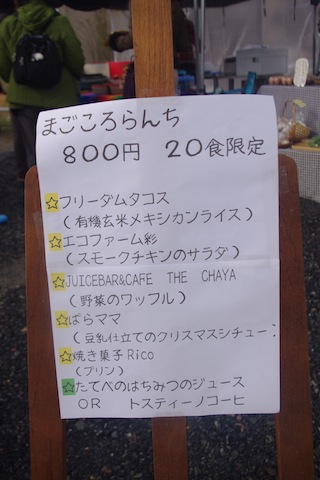 まごころらんち
800円 20食限定
☆フリーダムタコス
(有機玄米メキシカンライス)
☆エコファーム彩
(スモークチキンのサラダ)
☆JUICEBAR&CAFE THE CHAYA
(野菜のワッフル)
☆ばらママ
(豆乳仕立てのクリスマスシチュー)
☆焼き菓子Rico
(プリン)
☆たてべのはちみつのジュース
OR トスティーノコーヒ